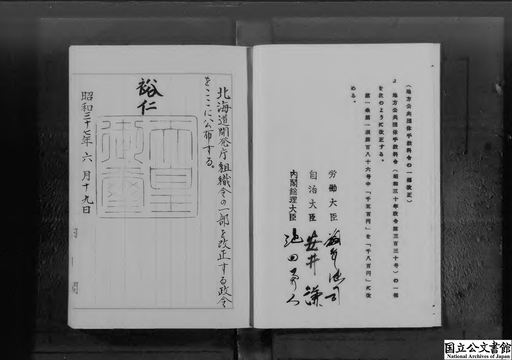 （地方公共団体手数料令の一部改正）
2 地方公共団体手数料令（昭和三十年政令第三百三十号）の一部
を次のように改正する。
第一条第一項第百八十六号中「千五百円」を「千八百円」に改
める。
労働大臣
自治大臣 安井謙
内閣総理大臣 池田勇人
北海道開発庁組織令の一部を改正する政令
をここに公布する。
裕仁
天皇
御璽
昭和三十七年六月十九日
国立公文書館
National Archives of Japan